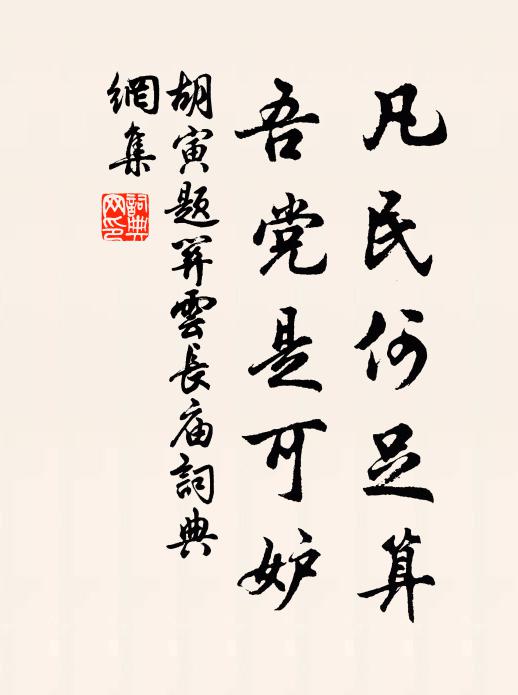 凡民何足算
吾党是可妒
胡寅题关雲長庙詞典
網集
詞典网印